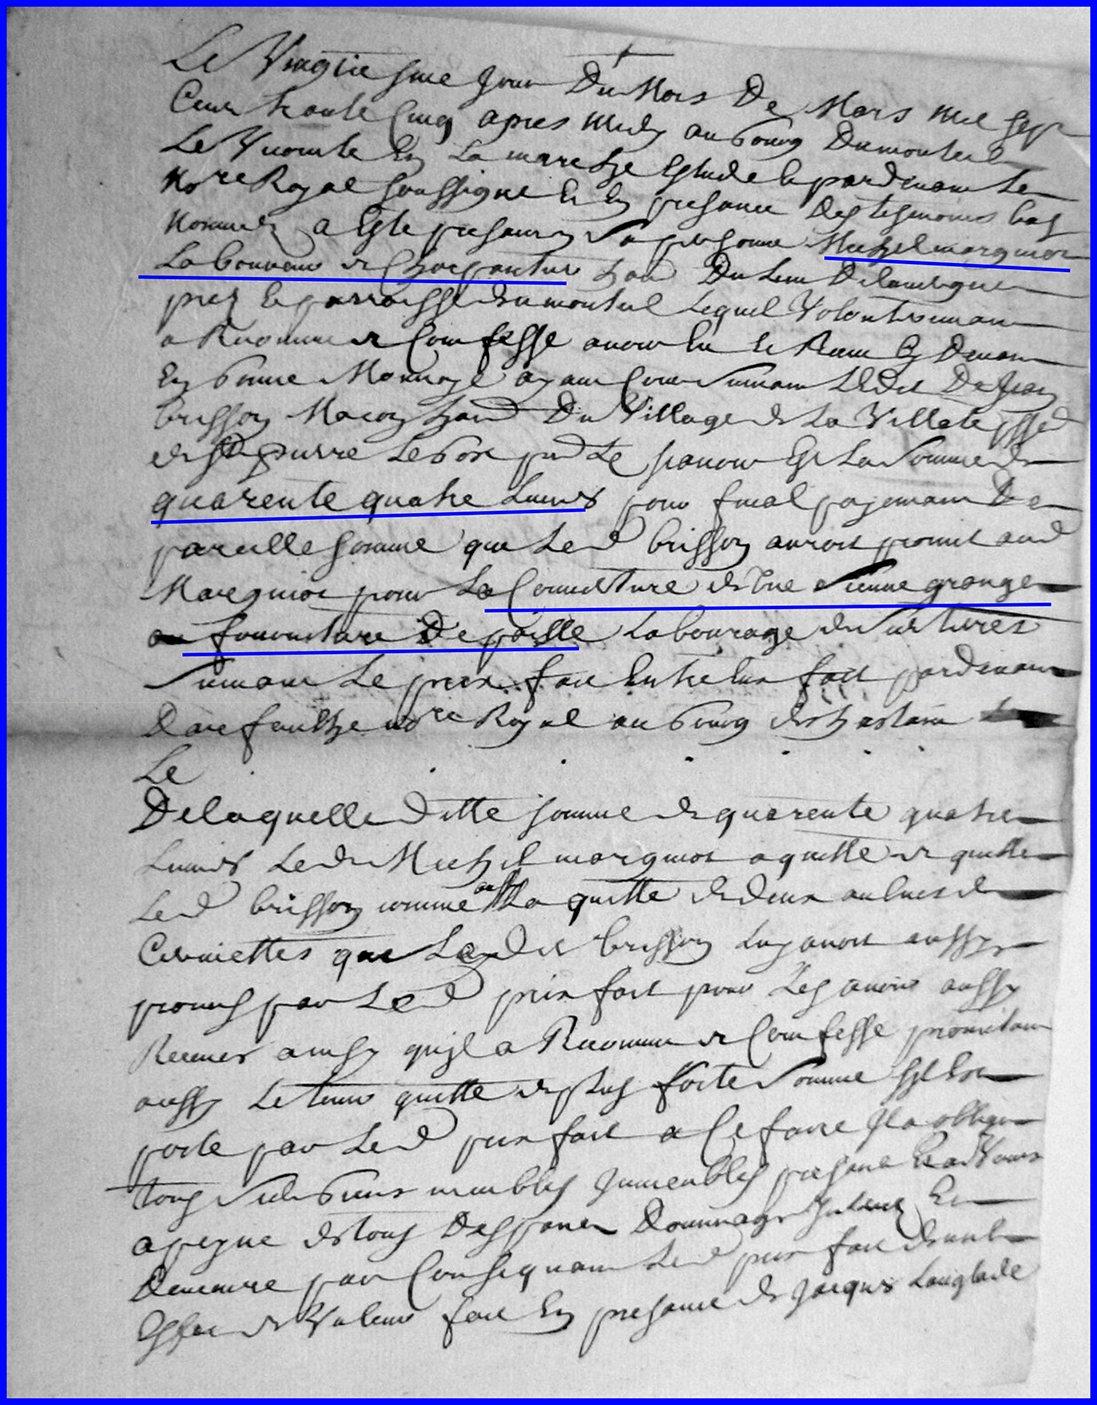 Le Vingtie sme Jour Du Mois De Mars mil sept
Cent trante Cinq apres midy au bourg Dumonteil
Le Vicomte En La marche Estude Et pardevant Le
no.re Royal soussigne Et En presance Des tesmoins bas
Nommes a Este presant En Sa personne Michel marquiot
Laboureur et Charpantier hab Du Lieu De
pres Et parroisse dumonteil Lequel Volontairemant
a Reconnu et Confesse avoir Eu Et Receu Cy Devant
En bonne Monnoye ayant Cour Suivant LEdit De Jean
brisson Macon hand Du Village de La Villate psse
de St pierre Le bost pnt Le scavoir Est La Somme de
quarente quatre Livres pour final payemant De
pareille somme que Led brisson auroit promit aud
Marquiot pour La Couverture de Une Sienne grange
a fourniture De paille Labourage de Ses terres
Suivant Le prix fait Entre Eux fait pardevant
Darefeuilhe no.re Royal au bourg de chastain
Le
De laquelle ditte somme de quarente quatre
Livres Led Michel marquiot aquitte et quitte
Led brisson comme aussy La quitte de deux aulnes de
que Ledit brisson Luy avoit aussy
promis par Led prix fait pour Les avoir aussy
Receues ainsy qu'jl a Reconnu et Confesse promettant
aussy Le tenir quitte de plus forte Somme Sil Est
porte par Led prix fait a Ce faire Jl a oblige
tous Ses biens meubles Jmmeubles presans Et advenir
a peyne de tous Despans Dommages Interest Et
Demeure par Consequant Led prix fait de nul
Effet et Valeur fait En presance de Jacques Langlade